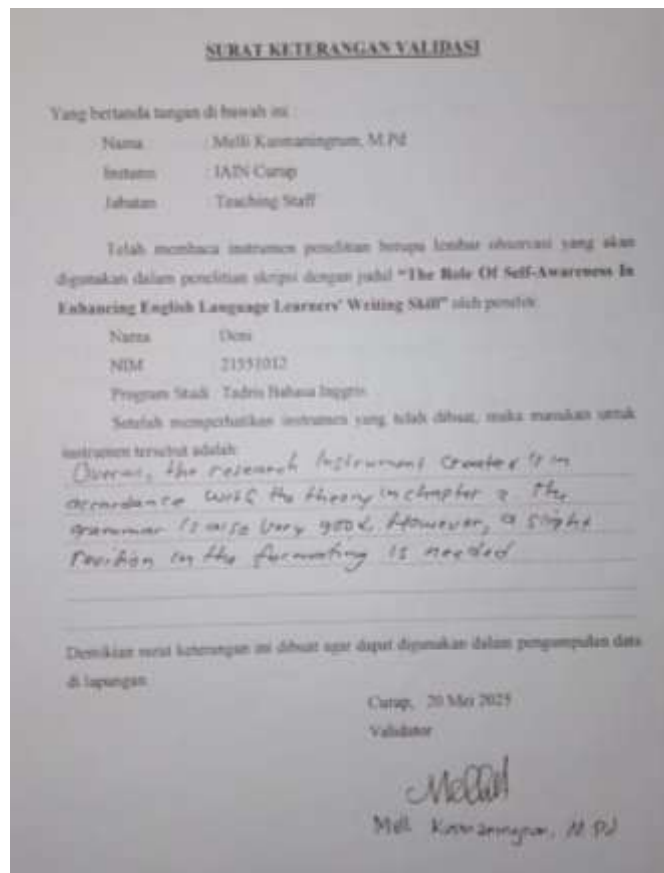 SURAT KETERANGAN VALIDASI
Yang bertanda tangan di bawah ini :
Nama : Melli Kusmaningrum, M.Pd
Instansi : IAIN Curup
Jabatan : Teaching Staff
Telah membaca instrumen penelitian berupa lembar observasi yang akan
digunakan dalam penelitian skripsi dengan judul “The Role Of Self-Awareness In
Enhancing English Language Learners' Writing Skill” oleh peneliti:
Nama : Deni
NIM : 21551012
Program Studi : Tadris Bahasa Inggris
Setelah memperhatikan instrumen yang telah dibuat, maka masukan untuk
instrumen tersebut adalah:
Overall, the research instrument created is in
accordance with the theory in chapter 2. The
grammar is also very good. However, a slight
revision in the formatting is needed
Demikian surat keterangan ini dibuat agar dapat digunakan dalam pengumpulan data
di lapangan
Curup, 20 Mei 2025
Validator
Melli Kusmaningrum, M.Pd